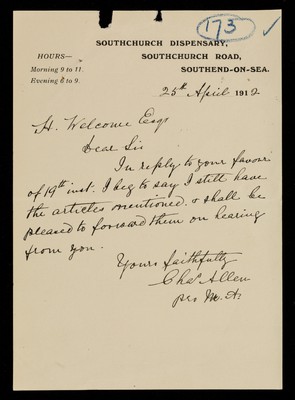 173
SOUTHCHURCH DISPENSARY,
HOURS— SOUTHCHURCH ROAD,
Morning 9 to 11. SOUTHEND-ON-SEA.
Evening 6 to 9.
25th April 1912
H. Welcome Esqr
Dear Sir
In reply to your favour
of 19th inst. I beg to say I still have
the articles mentioned. & shall be
pleased to forward them on hearing
from you.
Yours faithfully
Chas Allen
pro M. A.